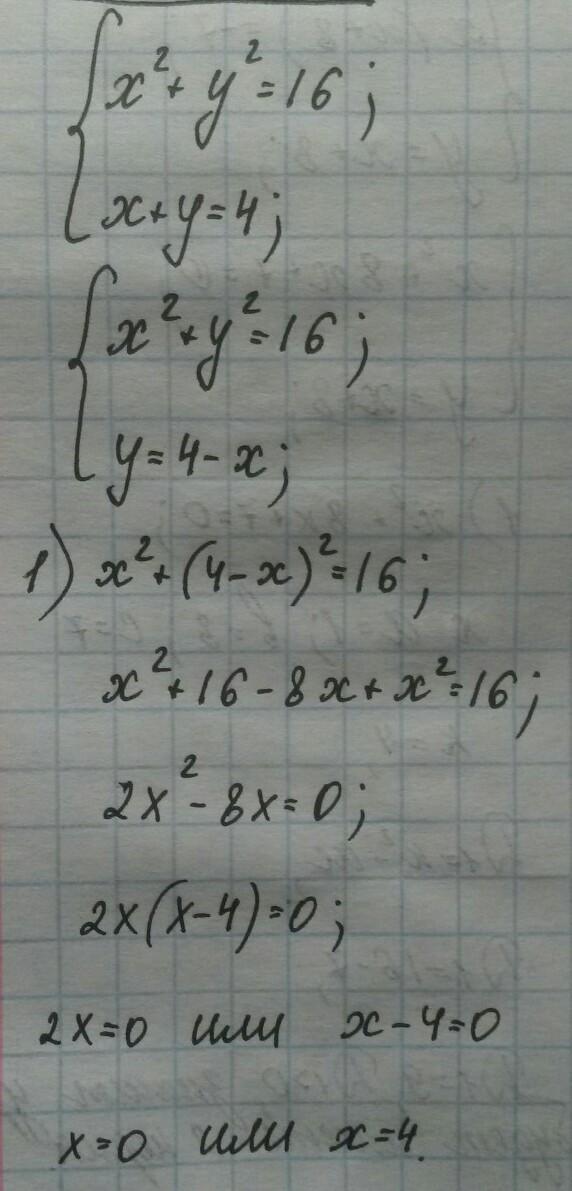 x² + y² = 16;
x + y = 4;
x² + y² = 16;
y = 4 - x;
1) x² + (4 - x)² = 16;
x² + 16 - 8x + x² = 16;
2x² - 8x = 0;
2x(x - 4) = 0;
2x = 0 или x - 4 = 0
x = 0 или x = 4.